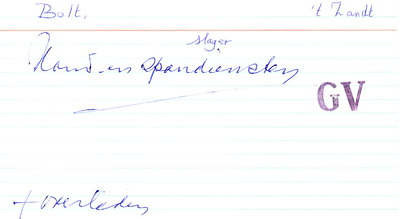 Bolt. 't Zandt
slager
Hand- en spandiensten
GV
+ overleden